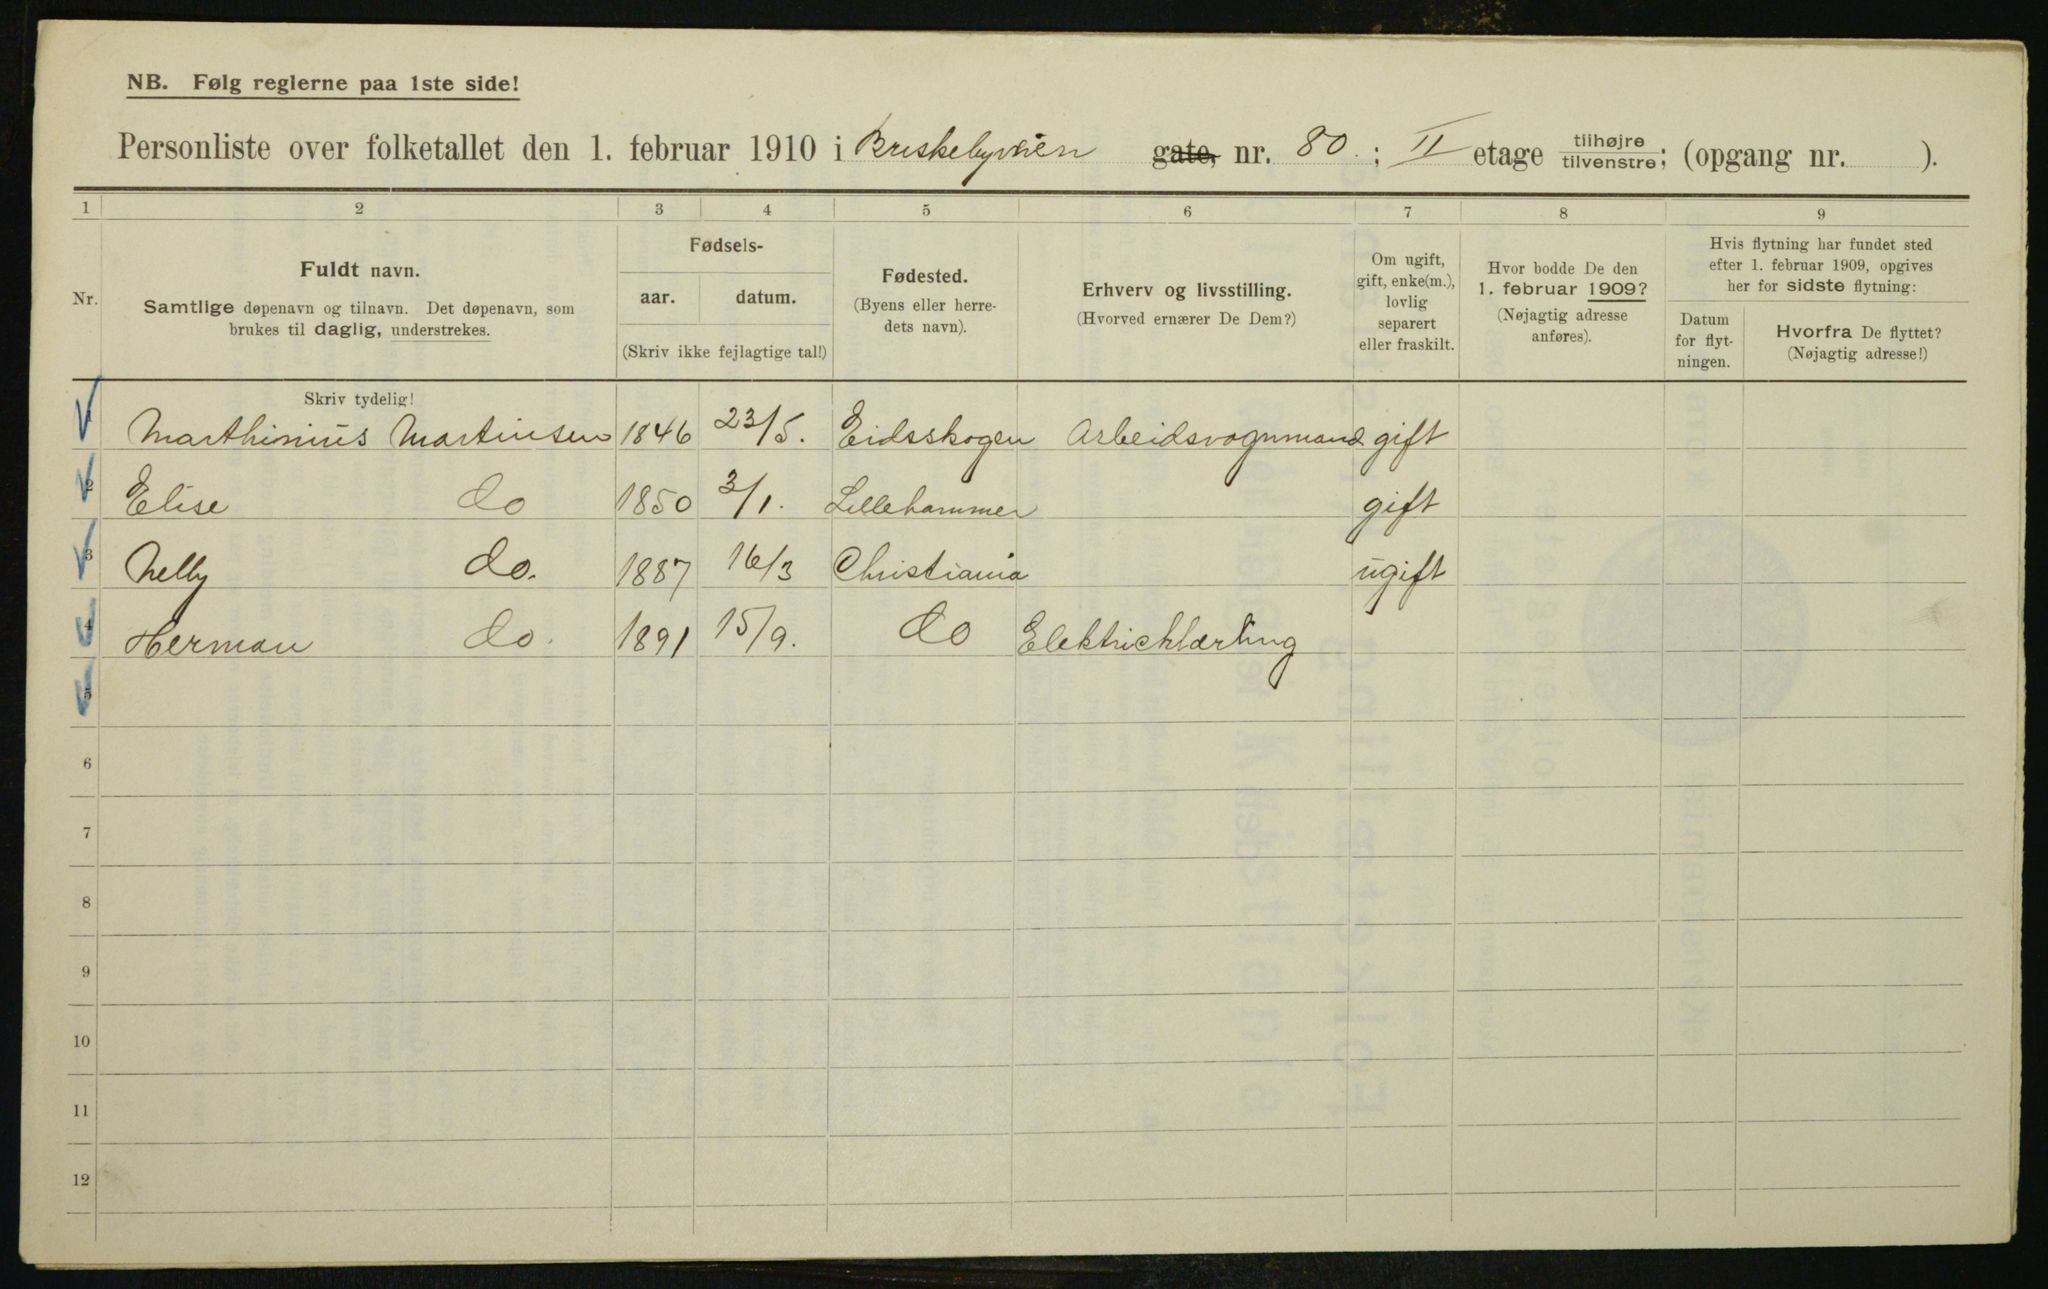 NB. Følg reglerne paa 1ste side!
Personliste over folketallet den 1. februar 1910 i Briskebyveien gate, nr. 80. ; II etage tilhøjre tilvenstre; (opgang nr. ).
1 2 3 4 5 6 7 8 9
Nr.
Fuldt navn.
Samtlige døpenavn og tilnavn. Det døpenavn, som
brukes til daglig, understrekes.
Fødsels-
aar. datum.
(Skriv ikke fejlagtige tal!)
Fødested.
(Byens eller herre-
dets navn).
Erhverv og livsstilling.
(Hvorved ernærer De Dem?)
Om ugift,
gift, enke(m.),
lovlig
separert
eller fraskilt.
Hvor bodde De den
1. februar 1909?
(Nøjagtig adresse
anføres).
Hvis flytning har fundet sted
efter 1. februar 1909, opgives
her for sidste flytning:
Datum
for flyt-
ningen.
Hvorfra De flyttet?
(Nøjagtig adresse!)
Skriv tydelig!
1 Marthinius Martinsen 1846 23/5. Eidsskogen Arbeidsvognmand gift
2 Elise do 1850 3/1. Lillehammer gift
3 Nelly do. 1887 16/3 Christiania ugift
4 Herman do. 1891 15/9. do Elektricklærling
5
6
7
8
9
10
11
12